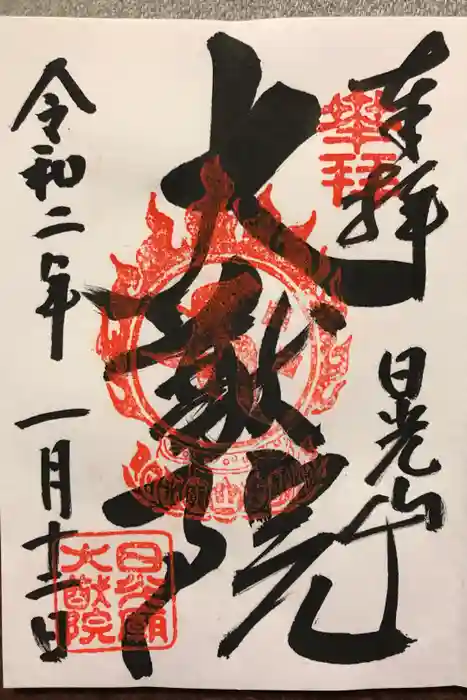 奉拝
奉拝
日光山
大猷院
令和二年一月十二日
日光廟
大猷院